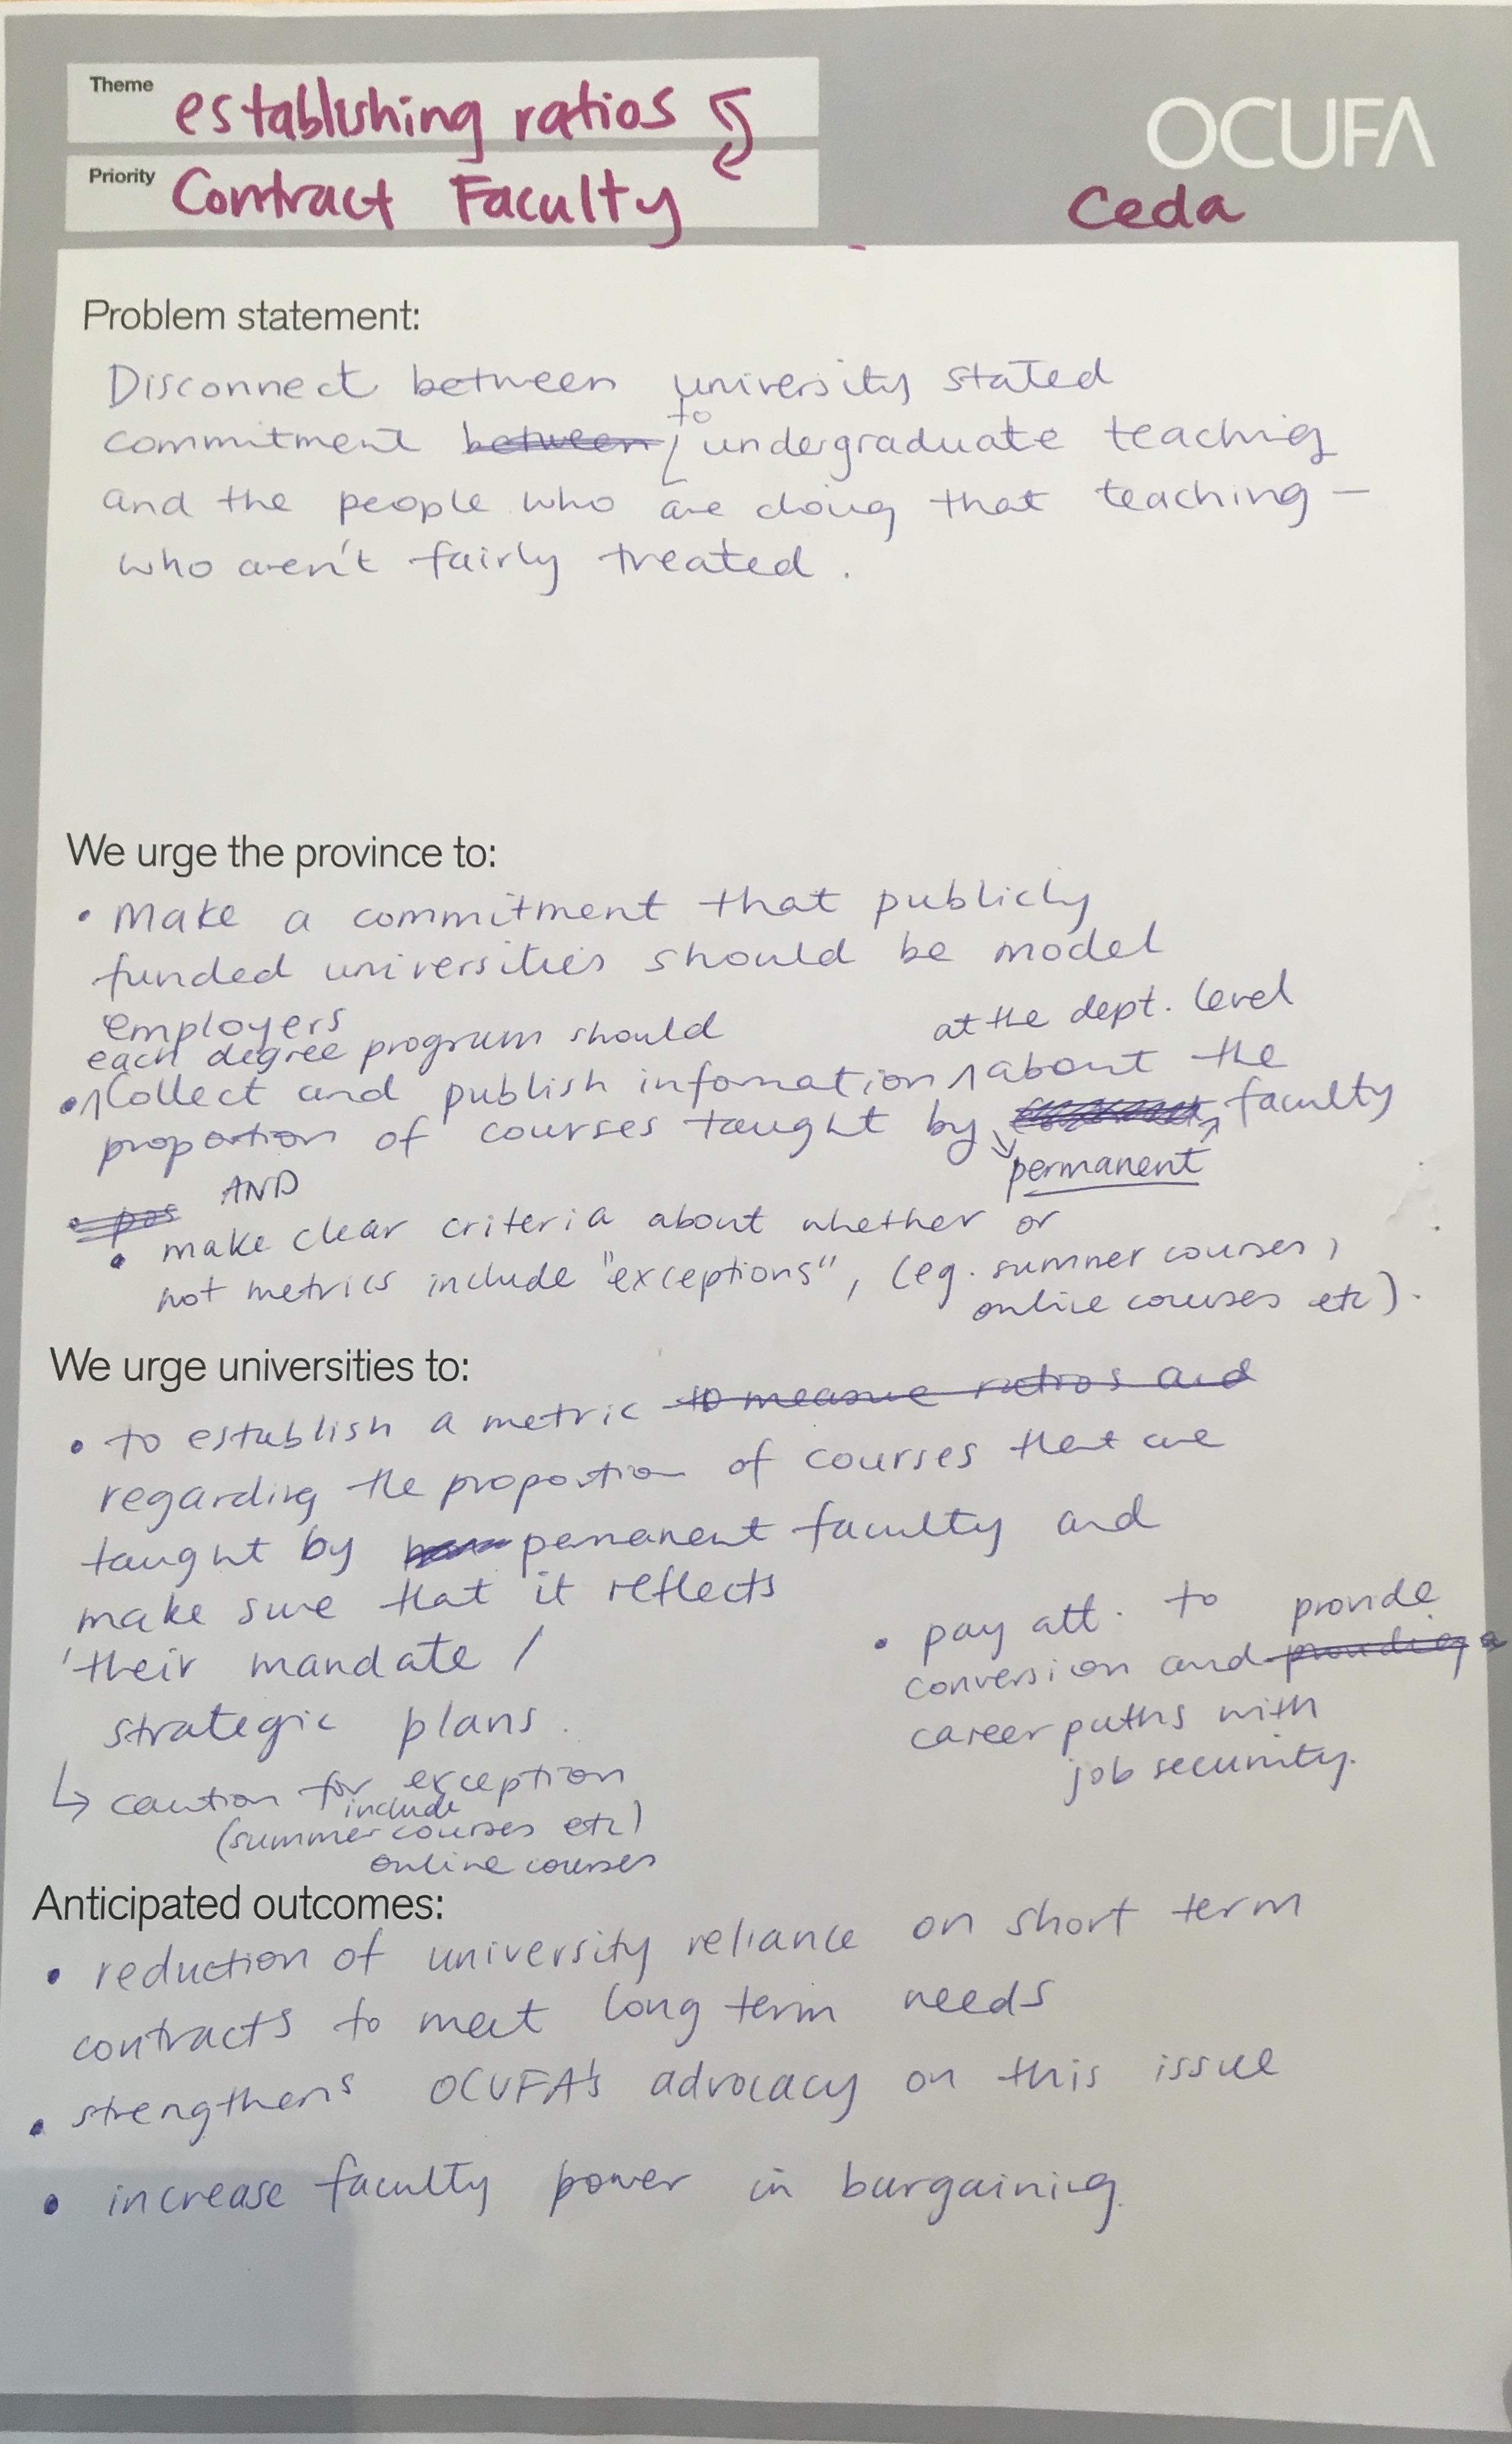 Theme establishing ratios
OCUFA
Priority Contract Faculty
Ceda
Problem statement:
Disconnect between university stated
commitment between to undergraduate teaching
and the people who are doing that teaching –
who aren't fairly treated.
We urge the province to:
• Make a commitment that publicly
funded universities should be model
employers
each degree program should
at the dept. level
• Collect and publish information about the
proportion of courses taught by faculty
permanent
AND
• pos
• make clear criteria about whether or
not metrics include "exceptions", (eg. summer courses,
online courses etc).
We urge universities to:
• to establish a metric to measure ratios and
regarding the proportion of courses that are
taught by permanent faculty and
make sure that it reflects
their mandate /
strategic plans.
↳ caution for exception
include
(summer courses etc)
online courses
• pay att. to provide
conversion and providing a
career paths with
job security.
Anticipated outcomes:
• reduction of university reliance on short term
contracts to meet long term needs
• strengthens OCUFA's advocacy on this issue
• increase faculty power in bargaining.